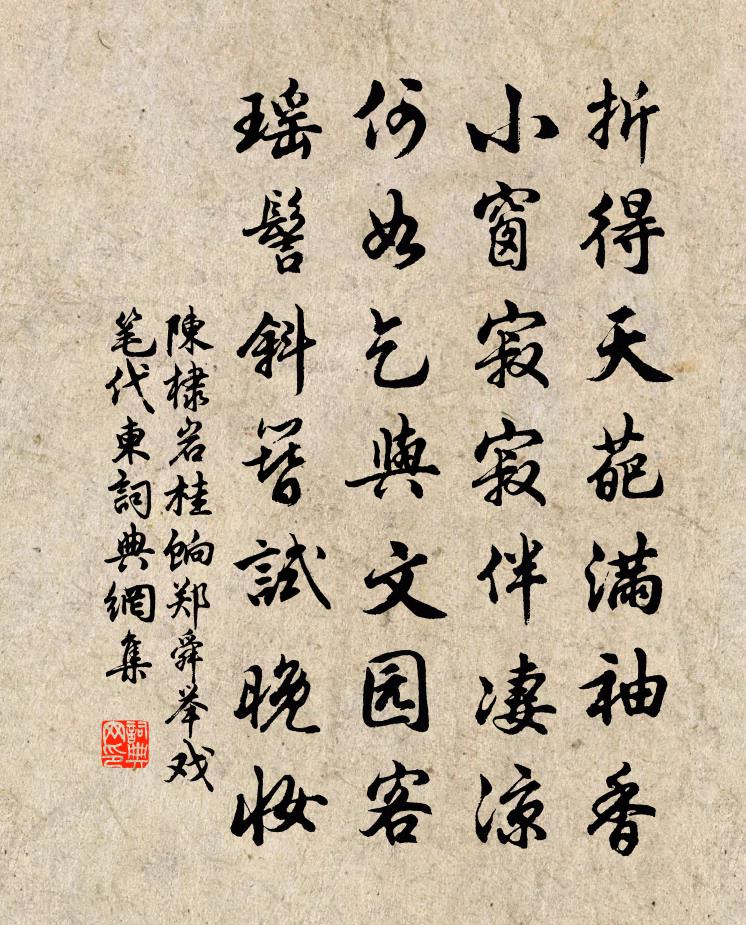 折得天葩满袖香
小窗寂寂伴凄凉
何如乞與文园客
瑶髻斜簪試晚妆
陳棣岩桂餉郑舜举戏
笔代東詞典網集
詞典网印